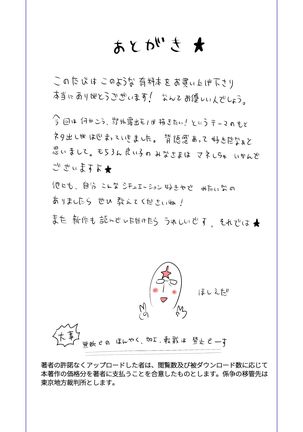 あとがき★
この度は このような 有料本を お買い上げ下さり
本当にありがとうございます！ なんてお優しい人でしょう。
今回は 何かこう、野外露出モノが描きたい！というテーマのもと
ネタ出しがはじまっていきました。背徳感あって 好きだなぁと
思いまして。もちろん良い子のみなさまは マネしちゃ いかんで
ございますよ★
他にも、自分 こんな シチュエーション 好きやで みたいなの
ありましたら ぜひ 教えてくださいね！
また 新作も 読んでいただけたら うれしいです。それでは★
はしえだ
大事
無断での ほんやく、加工、転載は 禁止でーす
著者の許諾なくアップロードした者は、閲覧数及び被ダウンロード数に応じて
本著作の価格分を著者に支払うことを合意したものとします。係争の移管先は
東京地方裁判所とします。